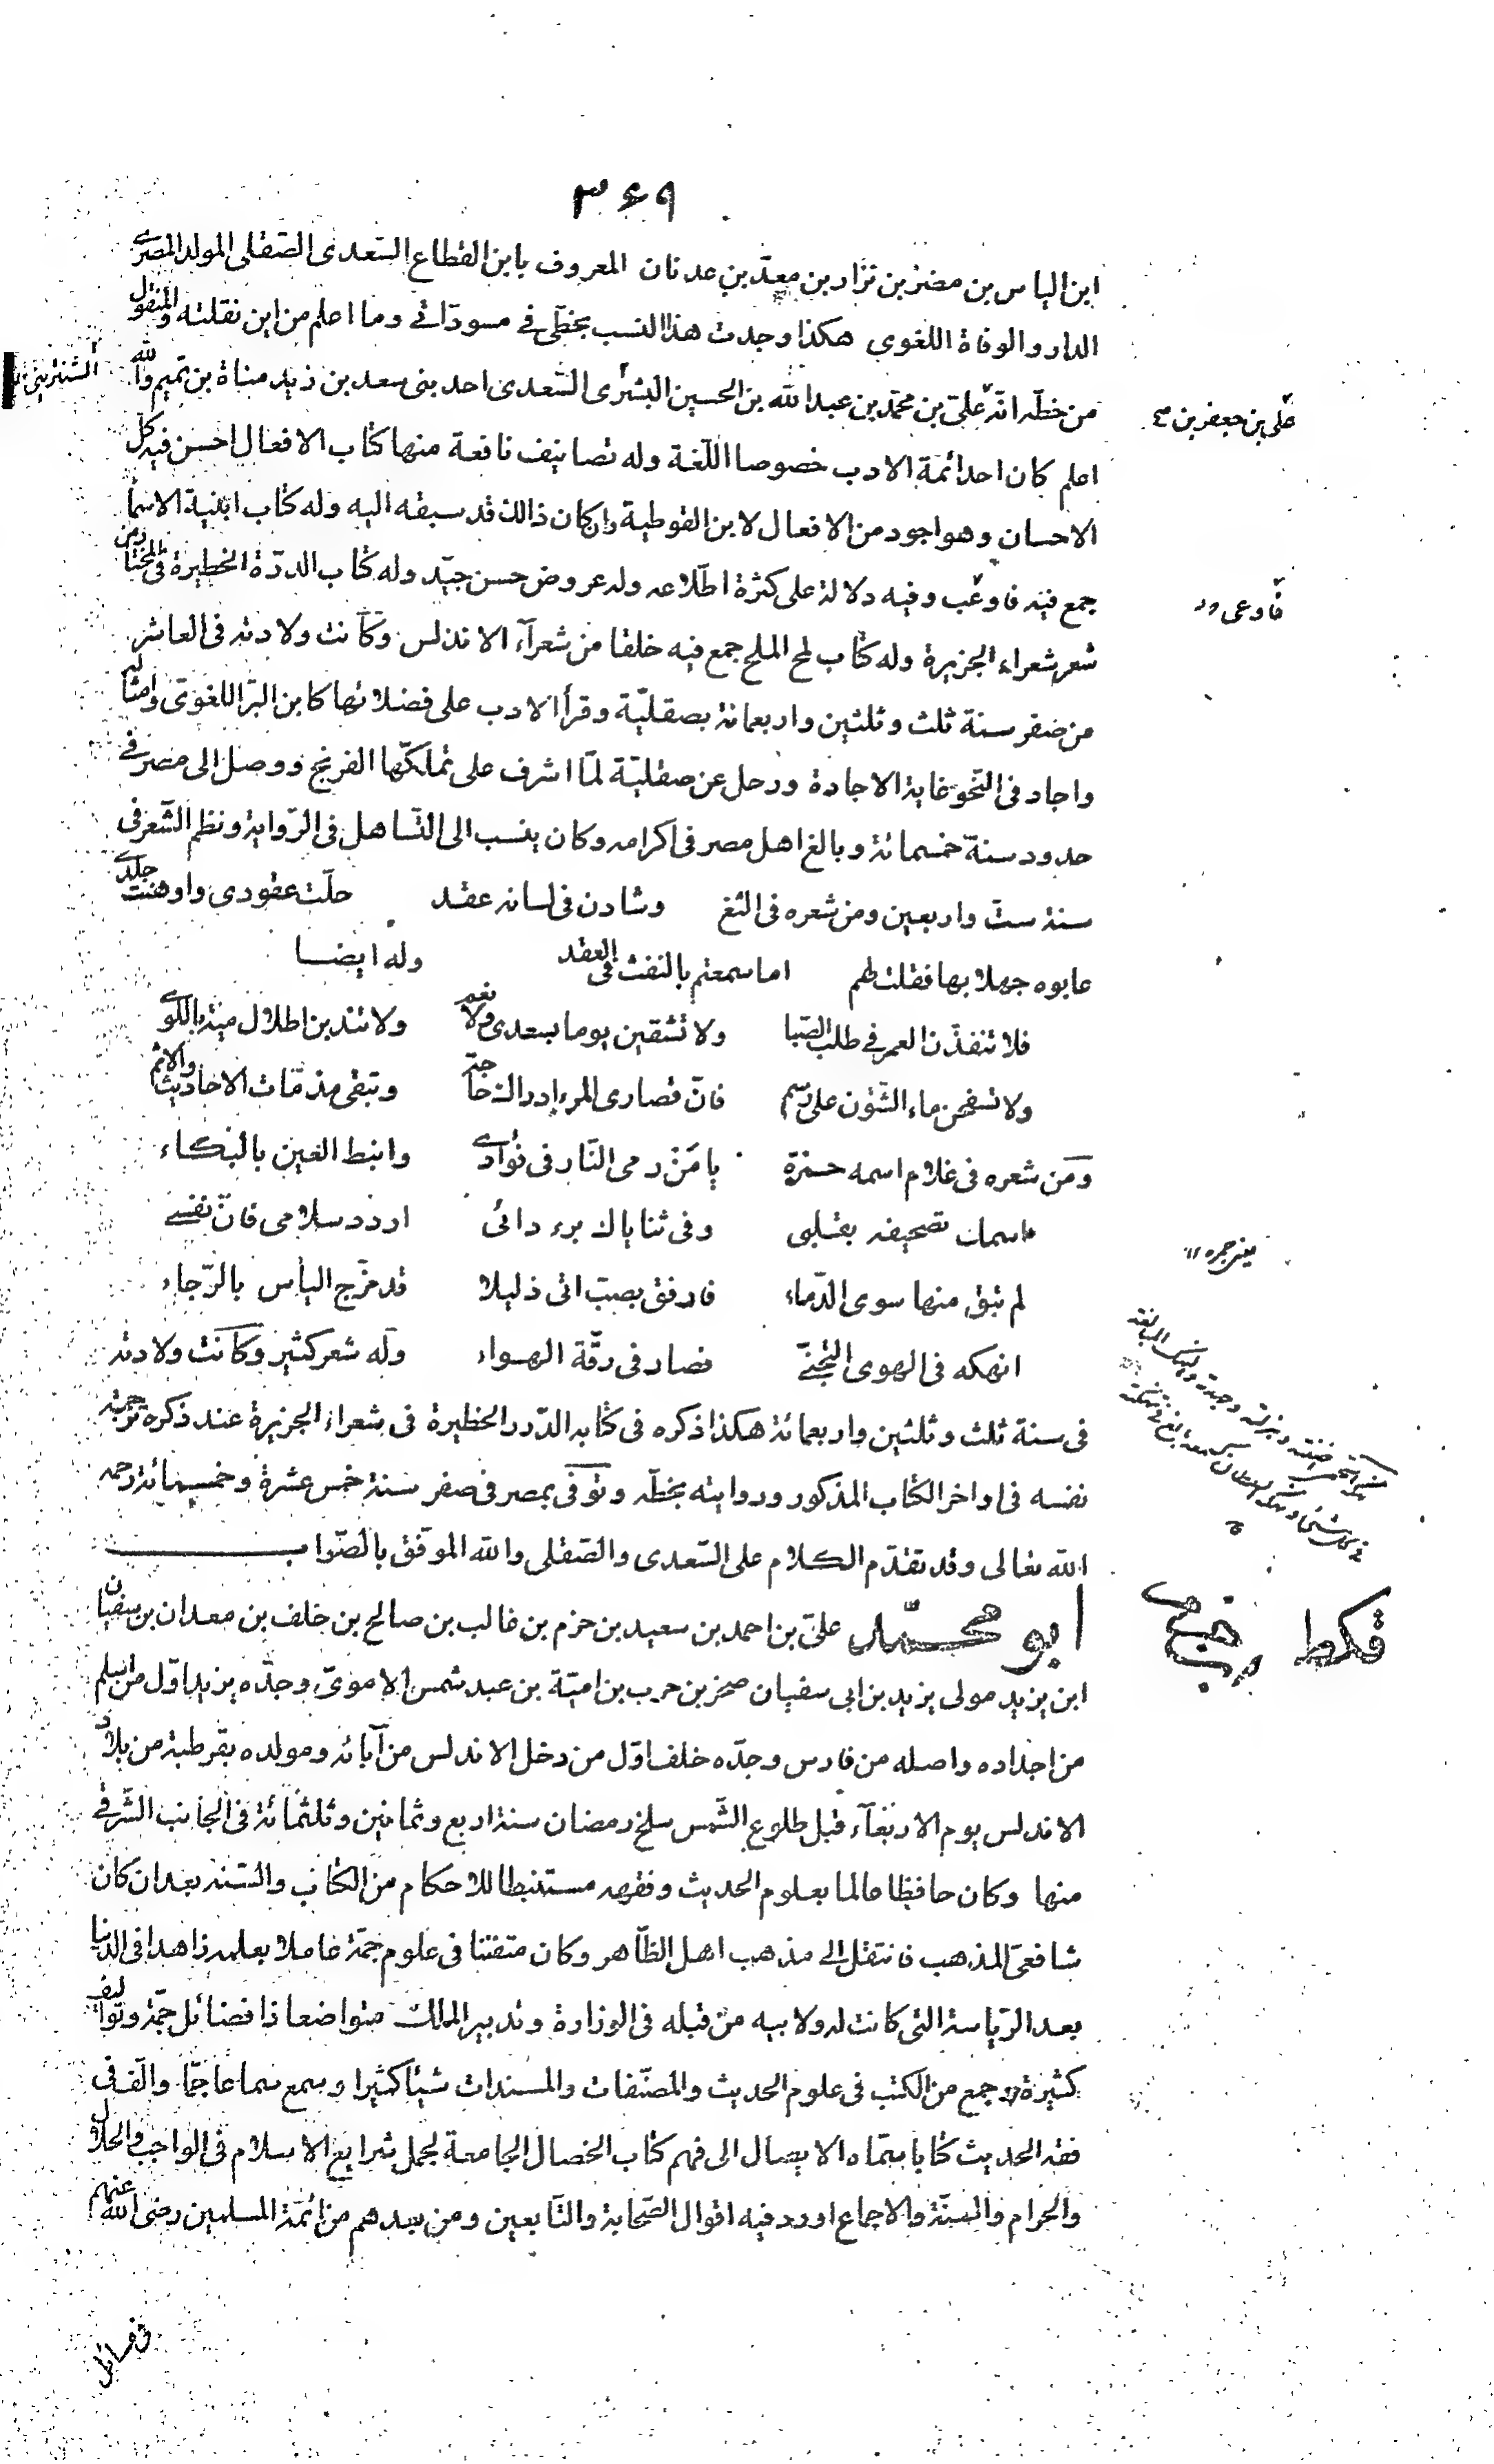 ۳۶۹
ابن الياس بن مضر بن نزار بن معدّ بن عدنان المعروف بابن القطاع السّعدى الصّقلى المولد المصرى
الدار و الوفاة اللغوى هكذا وجدت هذا النسب بخطّى فى مسودّاتى وما اعلم من اين نقلته والمنقول
من خطّه انّه علىّ بن محمّد بن عبد اللّه بن الحسين الشنترينى السّعدى احد بنى سعد بن زيد مناة بن تميم واللّه
علىّ بن جعفر بن صح
اعلم كان احد ائمة الادب خصوصا اللّغة وله تصانيف نافعة منها كتاب الافعال احسن فيه كل
الاحسان وهو اجود من الافعال لابن القوطية وان كان ذالك قد سبقه اليه وله كتاب ابنية الاسما
جمع فيه فاوعب وفيه دلالة على كثرة اطّلاعه وله عروض حسن جيّد وله كتاب الدرّة الخطيرة فى المختار من
فاوعى
شعر شعراء الجزيرة وله كتاب لمح الملح جمع فيه خلقا من شعرآء الاندلس وكانت ولادته فى العاشر
من صفر سنة ثلث وثلثين واربعمائة بصقليّة وقرأ الادب على فضلائها كابن البرّ اللغوىّ وامثاله
واجاد فى النّحو غاية الاجادة ورحل عن صقليّة لمّا اشرف على تملكّها الفرنج ووصل الى مصر فى
حدود سنة خمسمائة وبالغ اهل مصر فى اكرامه وكان ينسب الى التّساهل فى الرّواية ونظم الشّعر فى
سنة ستّ واربعين ومن شعره فى الثغ وشادن فى لسانه عقد حلّت عقودى واوهنت جلدى
عابوه جهلا بها فقلت لهم اما سمعتم بالنفث فى العقد وله ايضا
فلا تنفذّن العمر فى طلب الصّبا ولا تشقين يوما بسعدى ولا نعم ولا تندبن اطلال ميّة باللّوى
ولا تسفحن ماء الشّؤن على رسم فانّ قصارى المرء ادراك حاجة وتبقى مذمّات الاحاديث والاثم
ومن شعره فى غلام اسمه حمزة يا مَنْ رمى النّار فى فؤادى وانبط العين بالبكاء
اسمك تصحيفه بقلبى وفى ثناياك برء دائى اردد سلامى فانّ نفسى
لم تبق منها سوى الذّماء فارفق بصبّ اتى ذليلا قد مزّج اليأس بالرّجاء
يعنى جمره
انهكه فى الهوى التّجنّى فصار فى رقّة الهواء وله شعر كثير وكانت ولادته
فى سنة ثلث وثلثين واربعمائة هكذا ذكره فى كتابه الدّرر الخطيرة فى شعراء الجزيرة عند ذكره ترجمة
نفسه فى اواخر الكتاب المذكور وروايته بخطّه وتوّفى بمصر فى صفر سنة خمس عشرة وخمسمائة رحمه
اللّه تعالى وقد تقدّم الكلام على السّعدى والصّقلى واللّه الموّفق بالصّواب
ابو محمّد علىّ بن احمد بن سعيد بن حزم بن غالب بن صالح بن خلف بن معدان بن سفيان
ابن يزيد مولى يزيد بن ابى سفيان صخر بن حرب بن اميّة بن عبد شمس الاموىّ وجدّه يزيد اوّل من اسلم
من اجداده واصله من فارس وجدّه خلف اوّل من دخل الاندلس من آبائه ومولده بقرطبة من بلاد
الاندلس يوم الاربعآء قبل طلوع الشّمس سلخ رمضان سنة اربع وثمانين وثلثمائة فى الجانب الشّرقى
منها وكان حافظا عالما بعلوم الحديث وفقهه مستنبطا للاحكام من الكتاب والسّنة بعد ان كان
شافعىّ المذهب فانتقل الى مذهب اهل الظّاهر وكان متفنّنا فى علوم جمّة عاملا بعلمه زاهدا فى الدنيا
بعد الرّياسة التى كانت له ولابيه من قبله فى الوزارة وتدبير الملك متواضعا ذا فضائل جمّة وتواليف
كثيرة وجمع من الكتب فى علوم الحديث والمصنّفات والمسندات شيئا كثيرا وسمع سماعا جمّا والّف فى
فقه الحديث كتابا سمّاه الايصال الى فهم كتاب الخصال الجامعة لجمل شرايع الاسلام فى الواجب والحلال
والحرام والسنّة والاجماع اورد فيه اقوال الصّحابة والتّابعين ومن بعدهم من ائمّة المسلمين رضى اللّه عنهم
فى مسائل